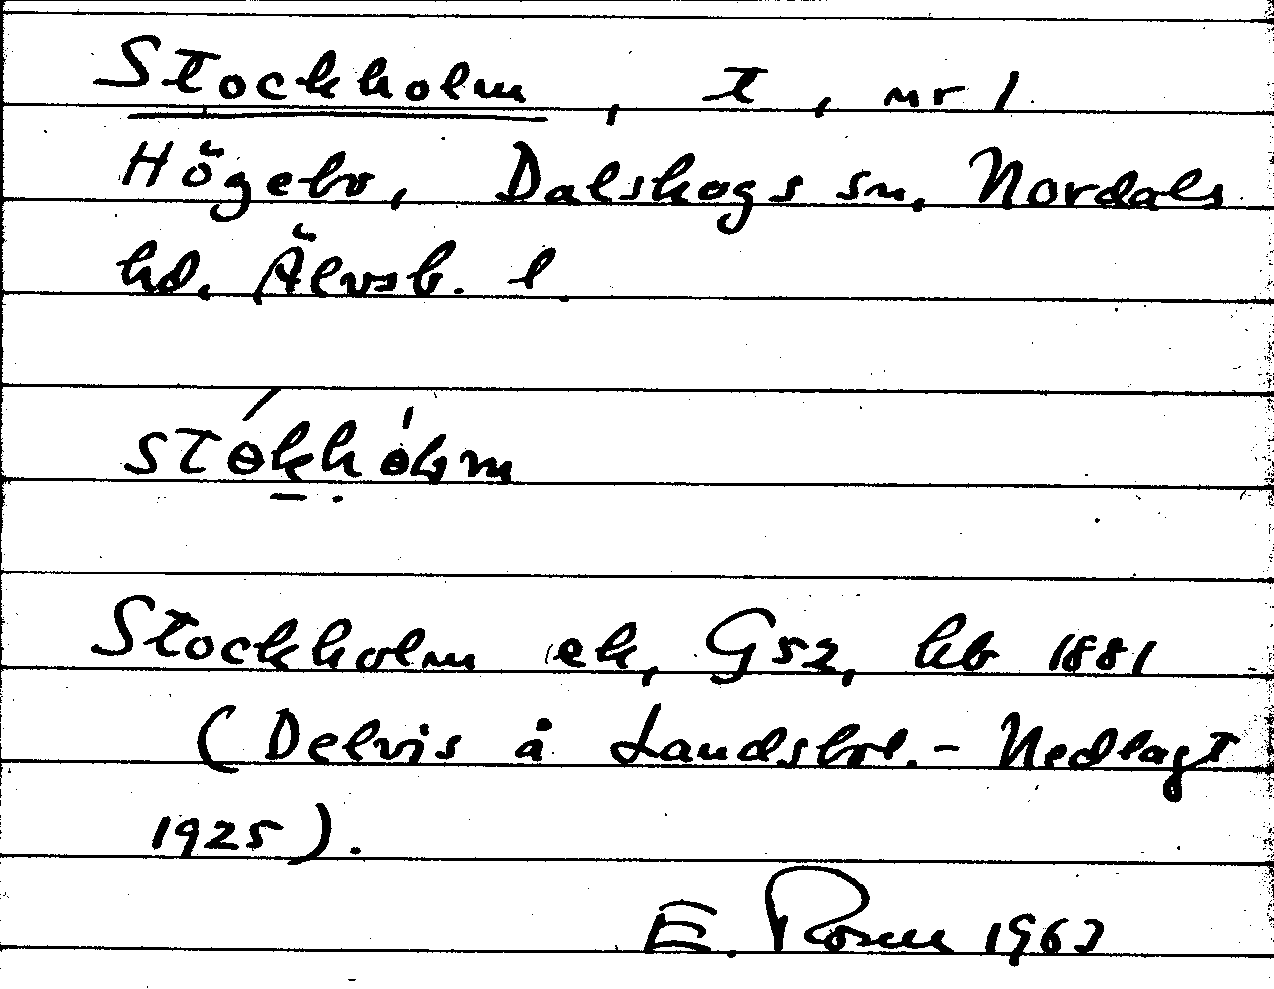 Stockholm, t, nr 1
Högebo, Dalskogs sn, Nordals
hd. Älvsb. l.
Stockholm ek, G52, kb 1881
(Delvis å Landsbol. - Nedlagt
1925).
E. 1963